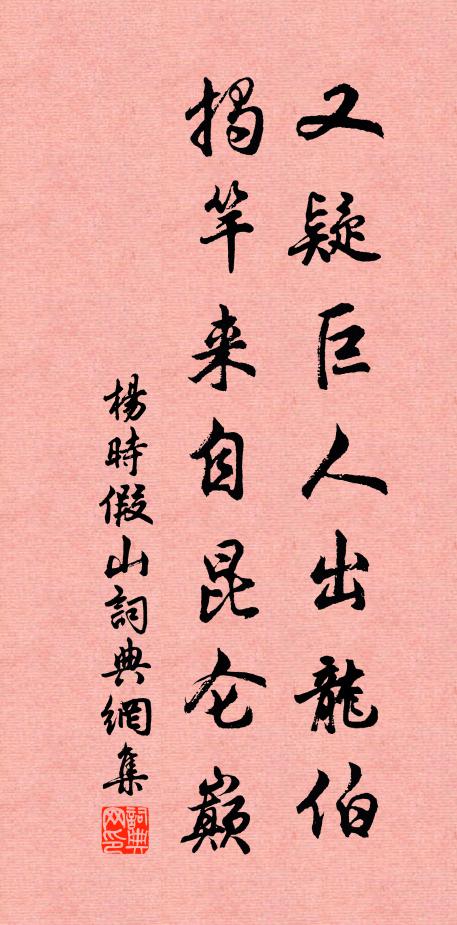 又疑巨人出龍伯
揭竿来自昆仑巅
楊時假山詞典網集
詞典网印